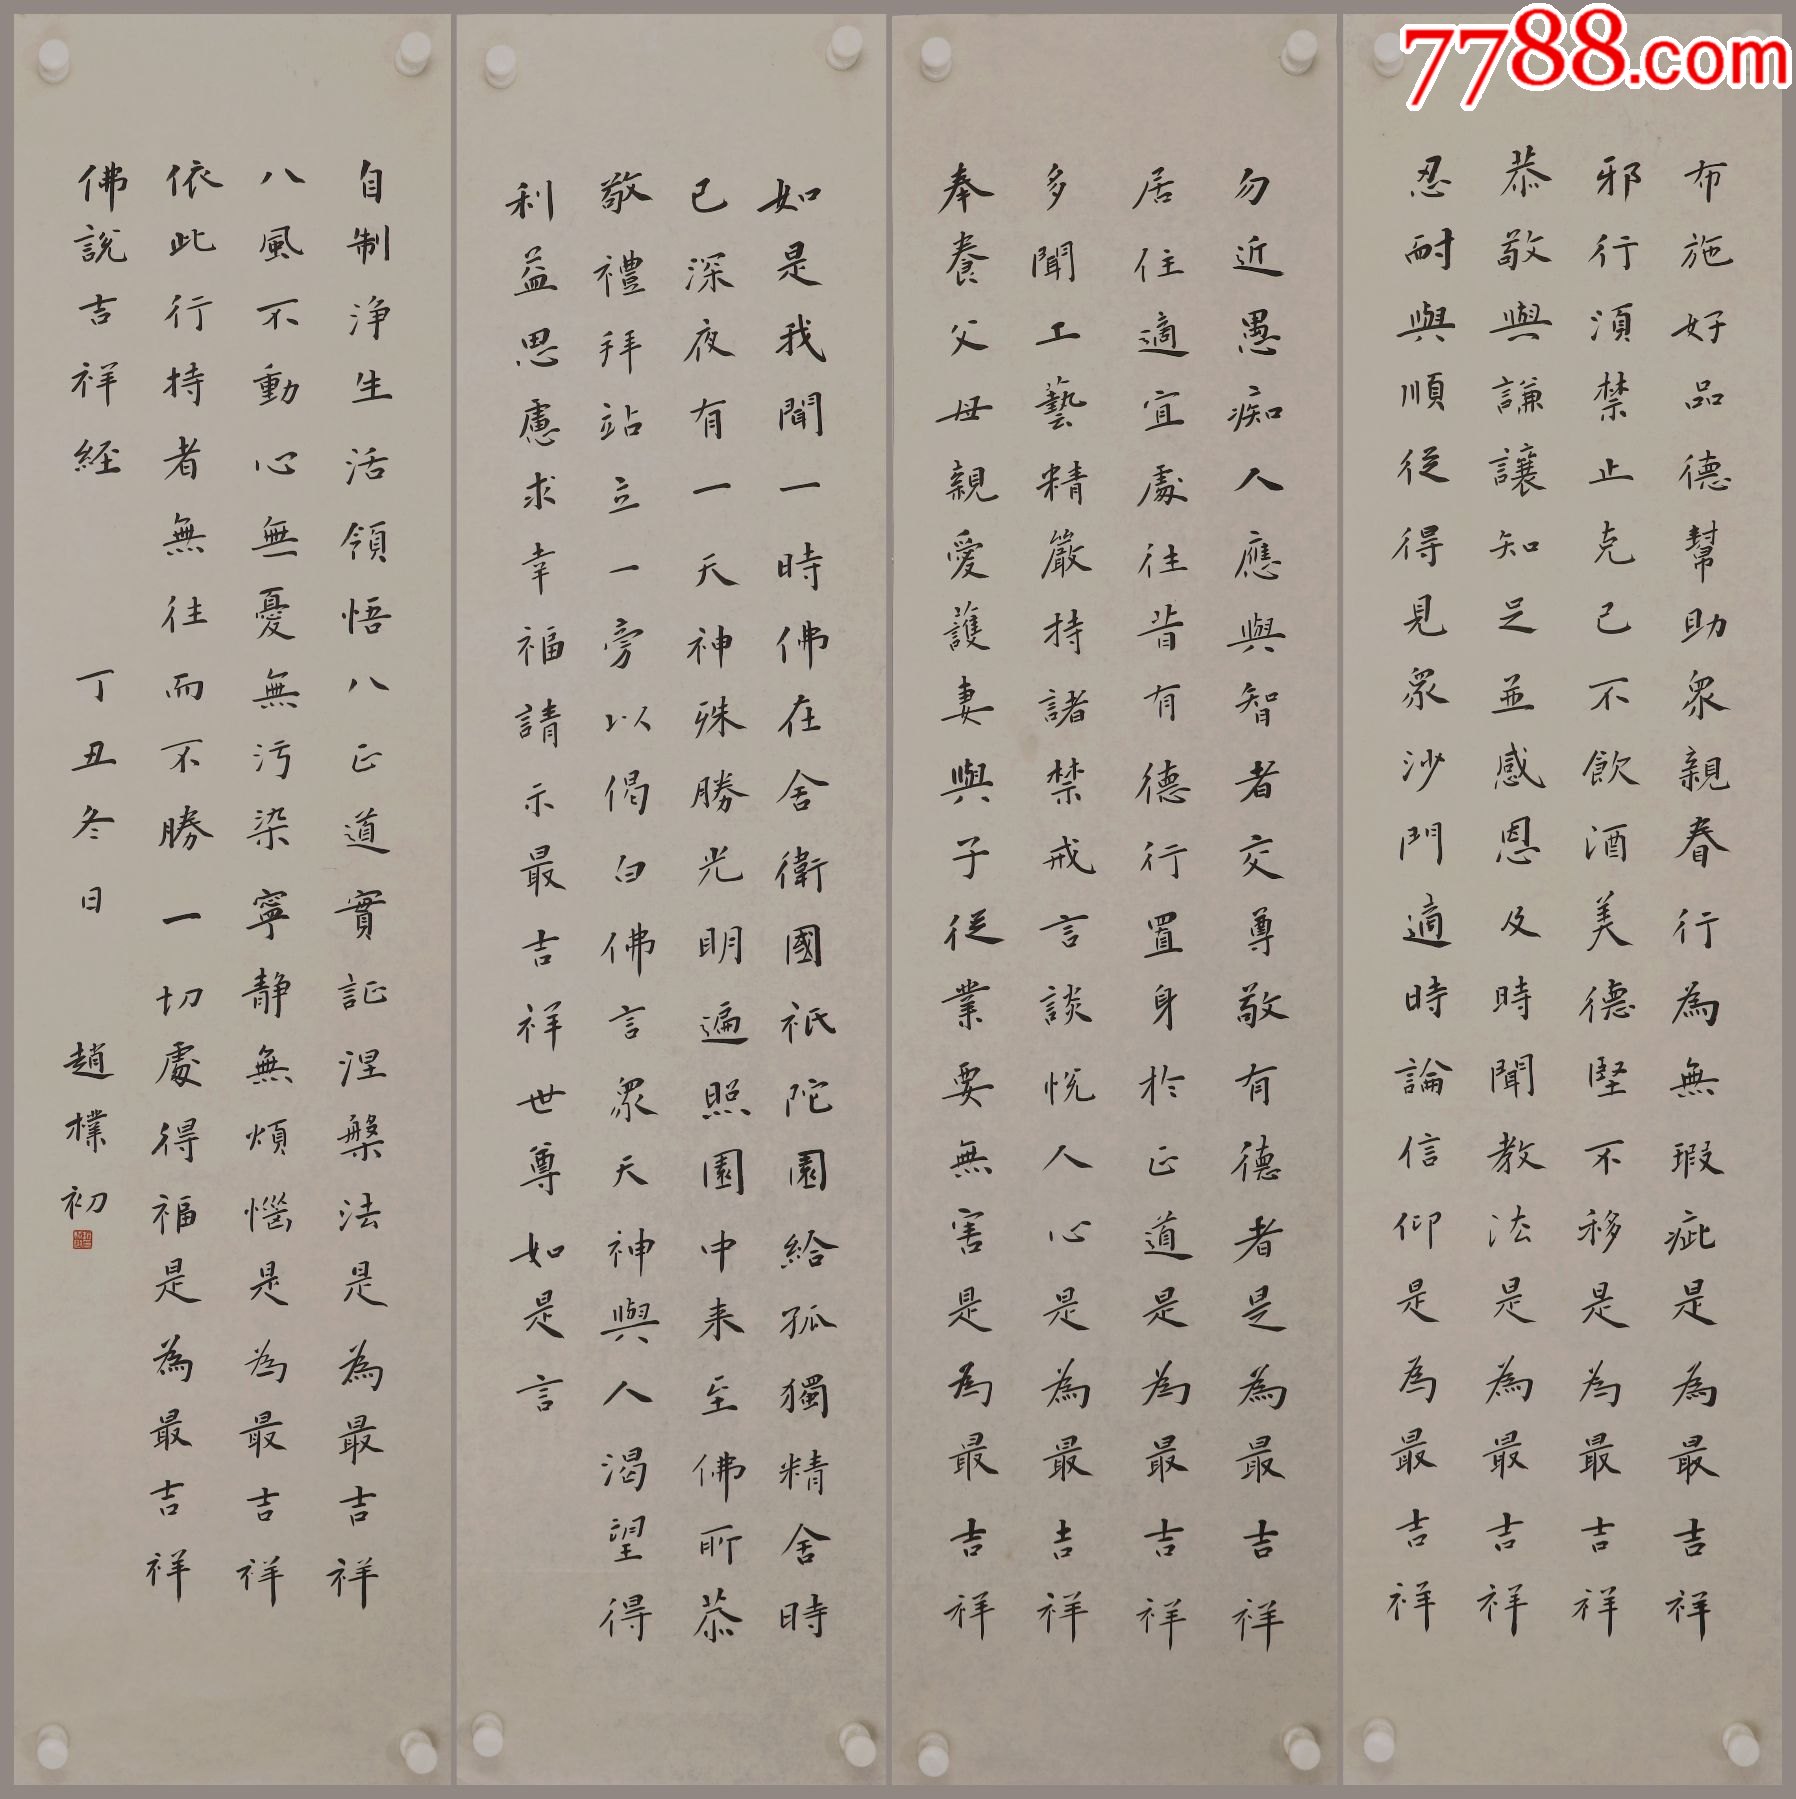 7788.com
布施好品德幫助眾親眷行為無瑕疵是為最吉祥
邪行須禁止克己不飲酒美德堅不移是為最吉祥
恭敬與謙讓知足並感恩及時聞教法是為最吉祥
忍耐與順從得見眾沙門適時論信仰是為最吉祥
勿近愚痴人應與智者交尊敬有德者是為最吉祥
居住適宜處往昔有德行置身於正道是為最吉祥
多聞工藝精嚴持諸禁戒言談悅人心是為最吉祥
奉養父母親愛護妻與子從業要無害是為最吉祥
如是我聞一時佛在舍衛國祇陀園給孤獨精舍時
已深夜有一天神殊勝光明遍照園中来至佛所恭
敬禮拜站立一旁以偈白佛言眾天神與人渴望得
利益思慮求幸福請示最吉祥世尊如是言
自制浄生活領悟八正道實証涅槃法是為最吉祥
八風不動心無憂無污染寧静無煩惱是為最吉祥
依此行持者無往而不勝一切處得福是為最吉祥
佛說吉祥経 丁丑冬日 趙樸初